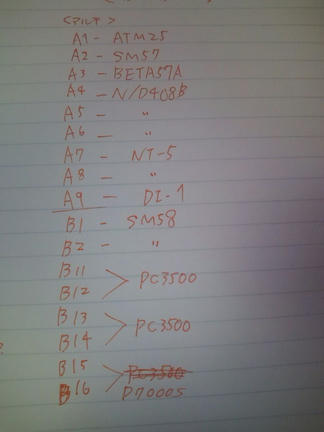 <マルチ>
A1 - ATM25
A2 - SM57
A3 - BETA57A
A4 - N/D408B
A5 - 〃
A6 - 〃
A7 - NT-5
A8 - 〃
A9 - DI-1
B1 - SM58
B2 - 〃
B11
B12 > PC3500
B13
B14 > PC3500
B15 PC3500
B16 > D7000S